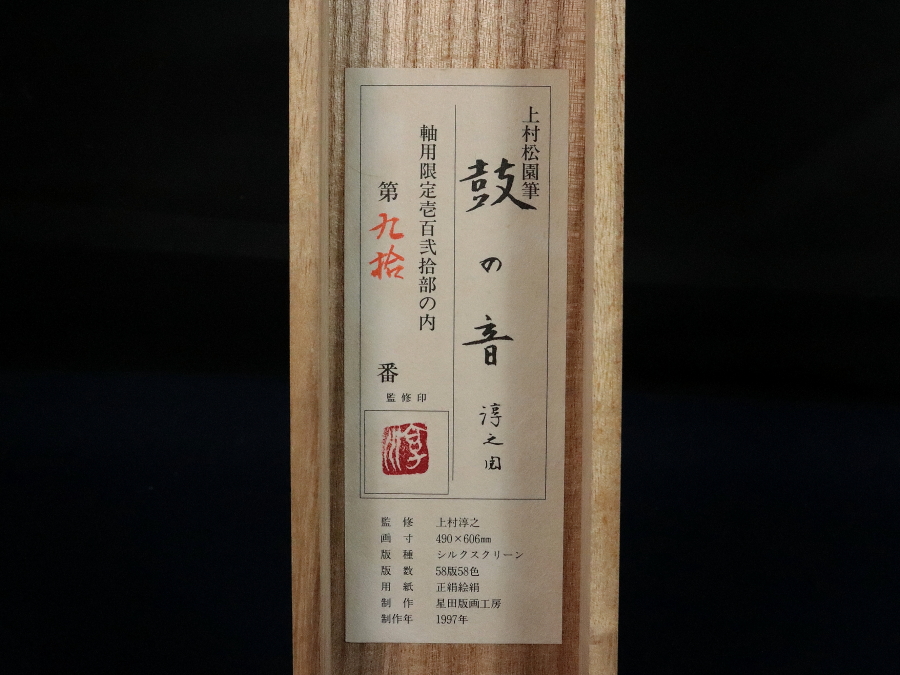 上村松園筆
鼓の音 淳之閲
軸用限定壱百弐拾部の内
第九拾番
監修印
淳
監修 上村淳之
画寸 490×606㎜
版種 シルクスクリーン
版数 58版58色
用紙 正絹絵絹
制作 星田版画工房
制作年 1997年